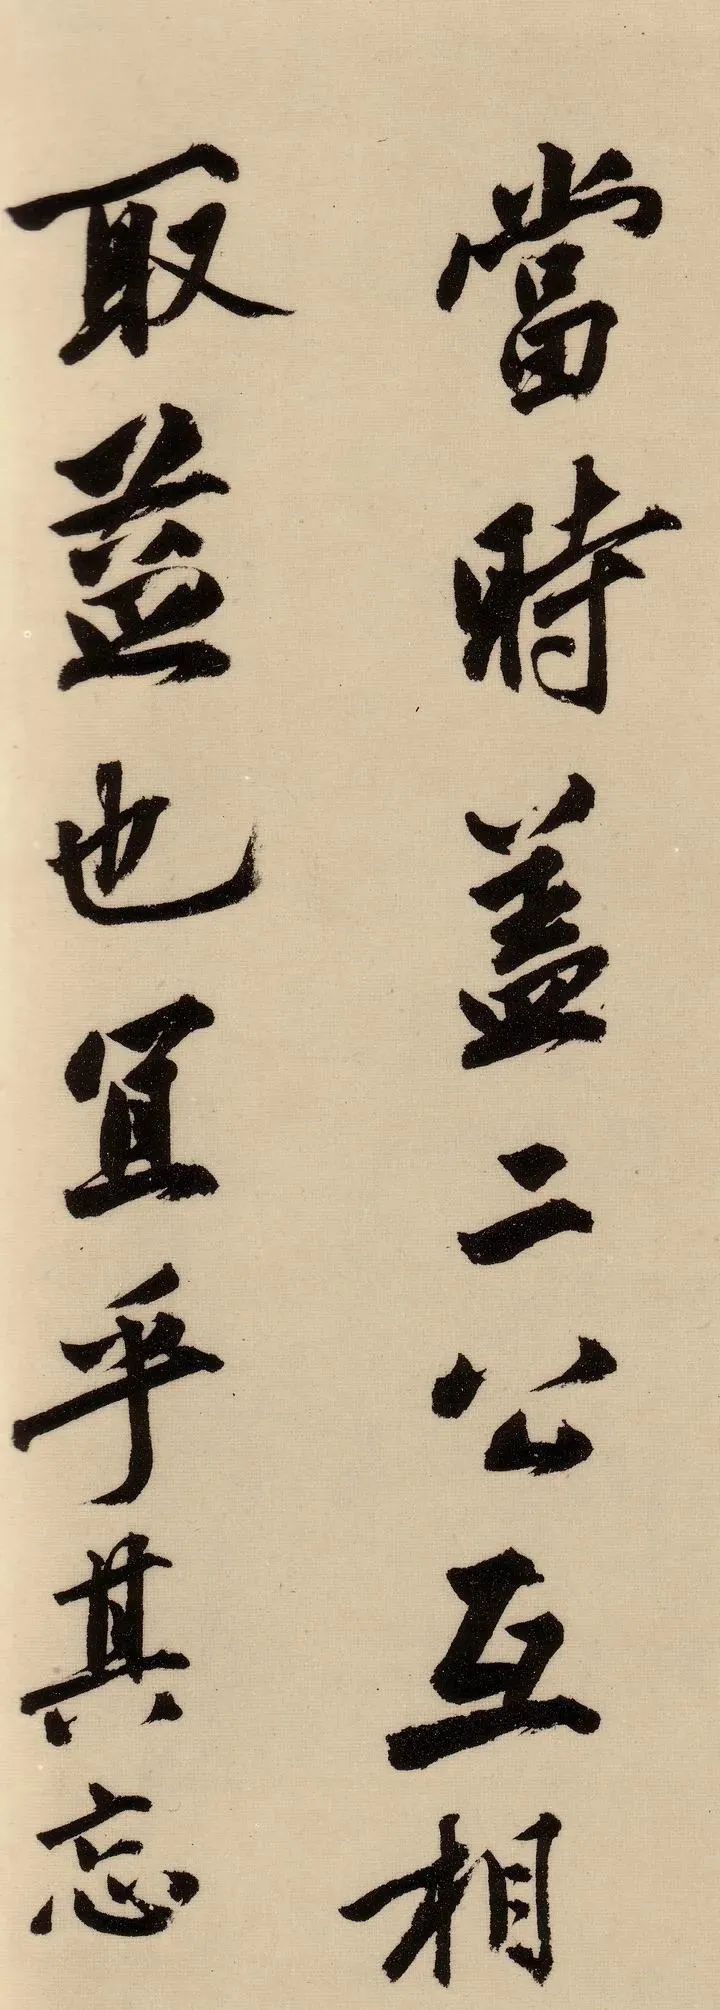 當時蓋二公互相
取益也宜乎其忘